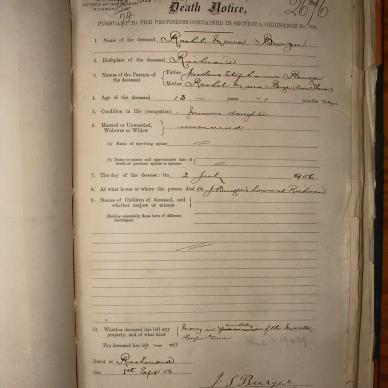 Death Notice.
PURSUANT TO THE PROVISIONS CONTAINED IN SECTION 9, ORDINANCE No. 104.
1. Name of the deceased Rachel Maria Burger
2. Birthplace of the deceased Richmond
3. Names of the Parents of the deceased
Father Jacobus Stephanus Burger
Mother Rachel Maria Burger
4. Age of the deceased 13 years 1 months days
5. Condition in life (occupation) farmers daughter
6. Married or Unmarried, Widower or Widow unmarried
(a) Name of surviving spouse
(b) Name or names and approximate date of death of previous spouse or spouses
7. The day of the decease: On 2 July 1906
8. At what house or where the person died A. J. Burger's house at Richmond
9. Names of Children of deceased, and whether majors or minors
(Stating separately those born of different marriages)
10. Whether deceased has left any property, and of what kind Money in of the Master
The deceased has left no will Cape Town
Dated at Richmond
this 1st Sept 06
J S Burger